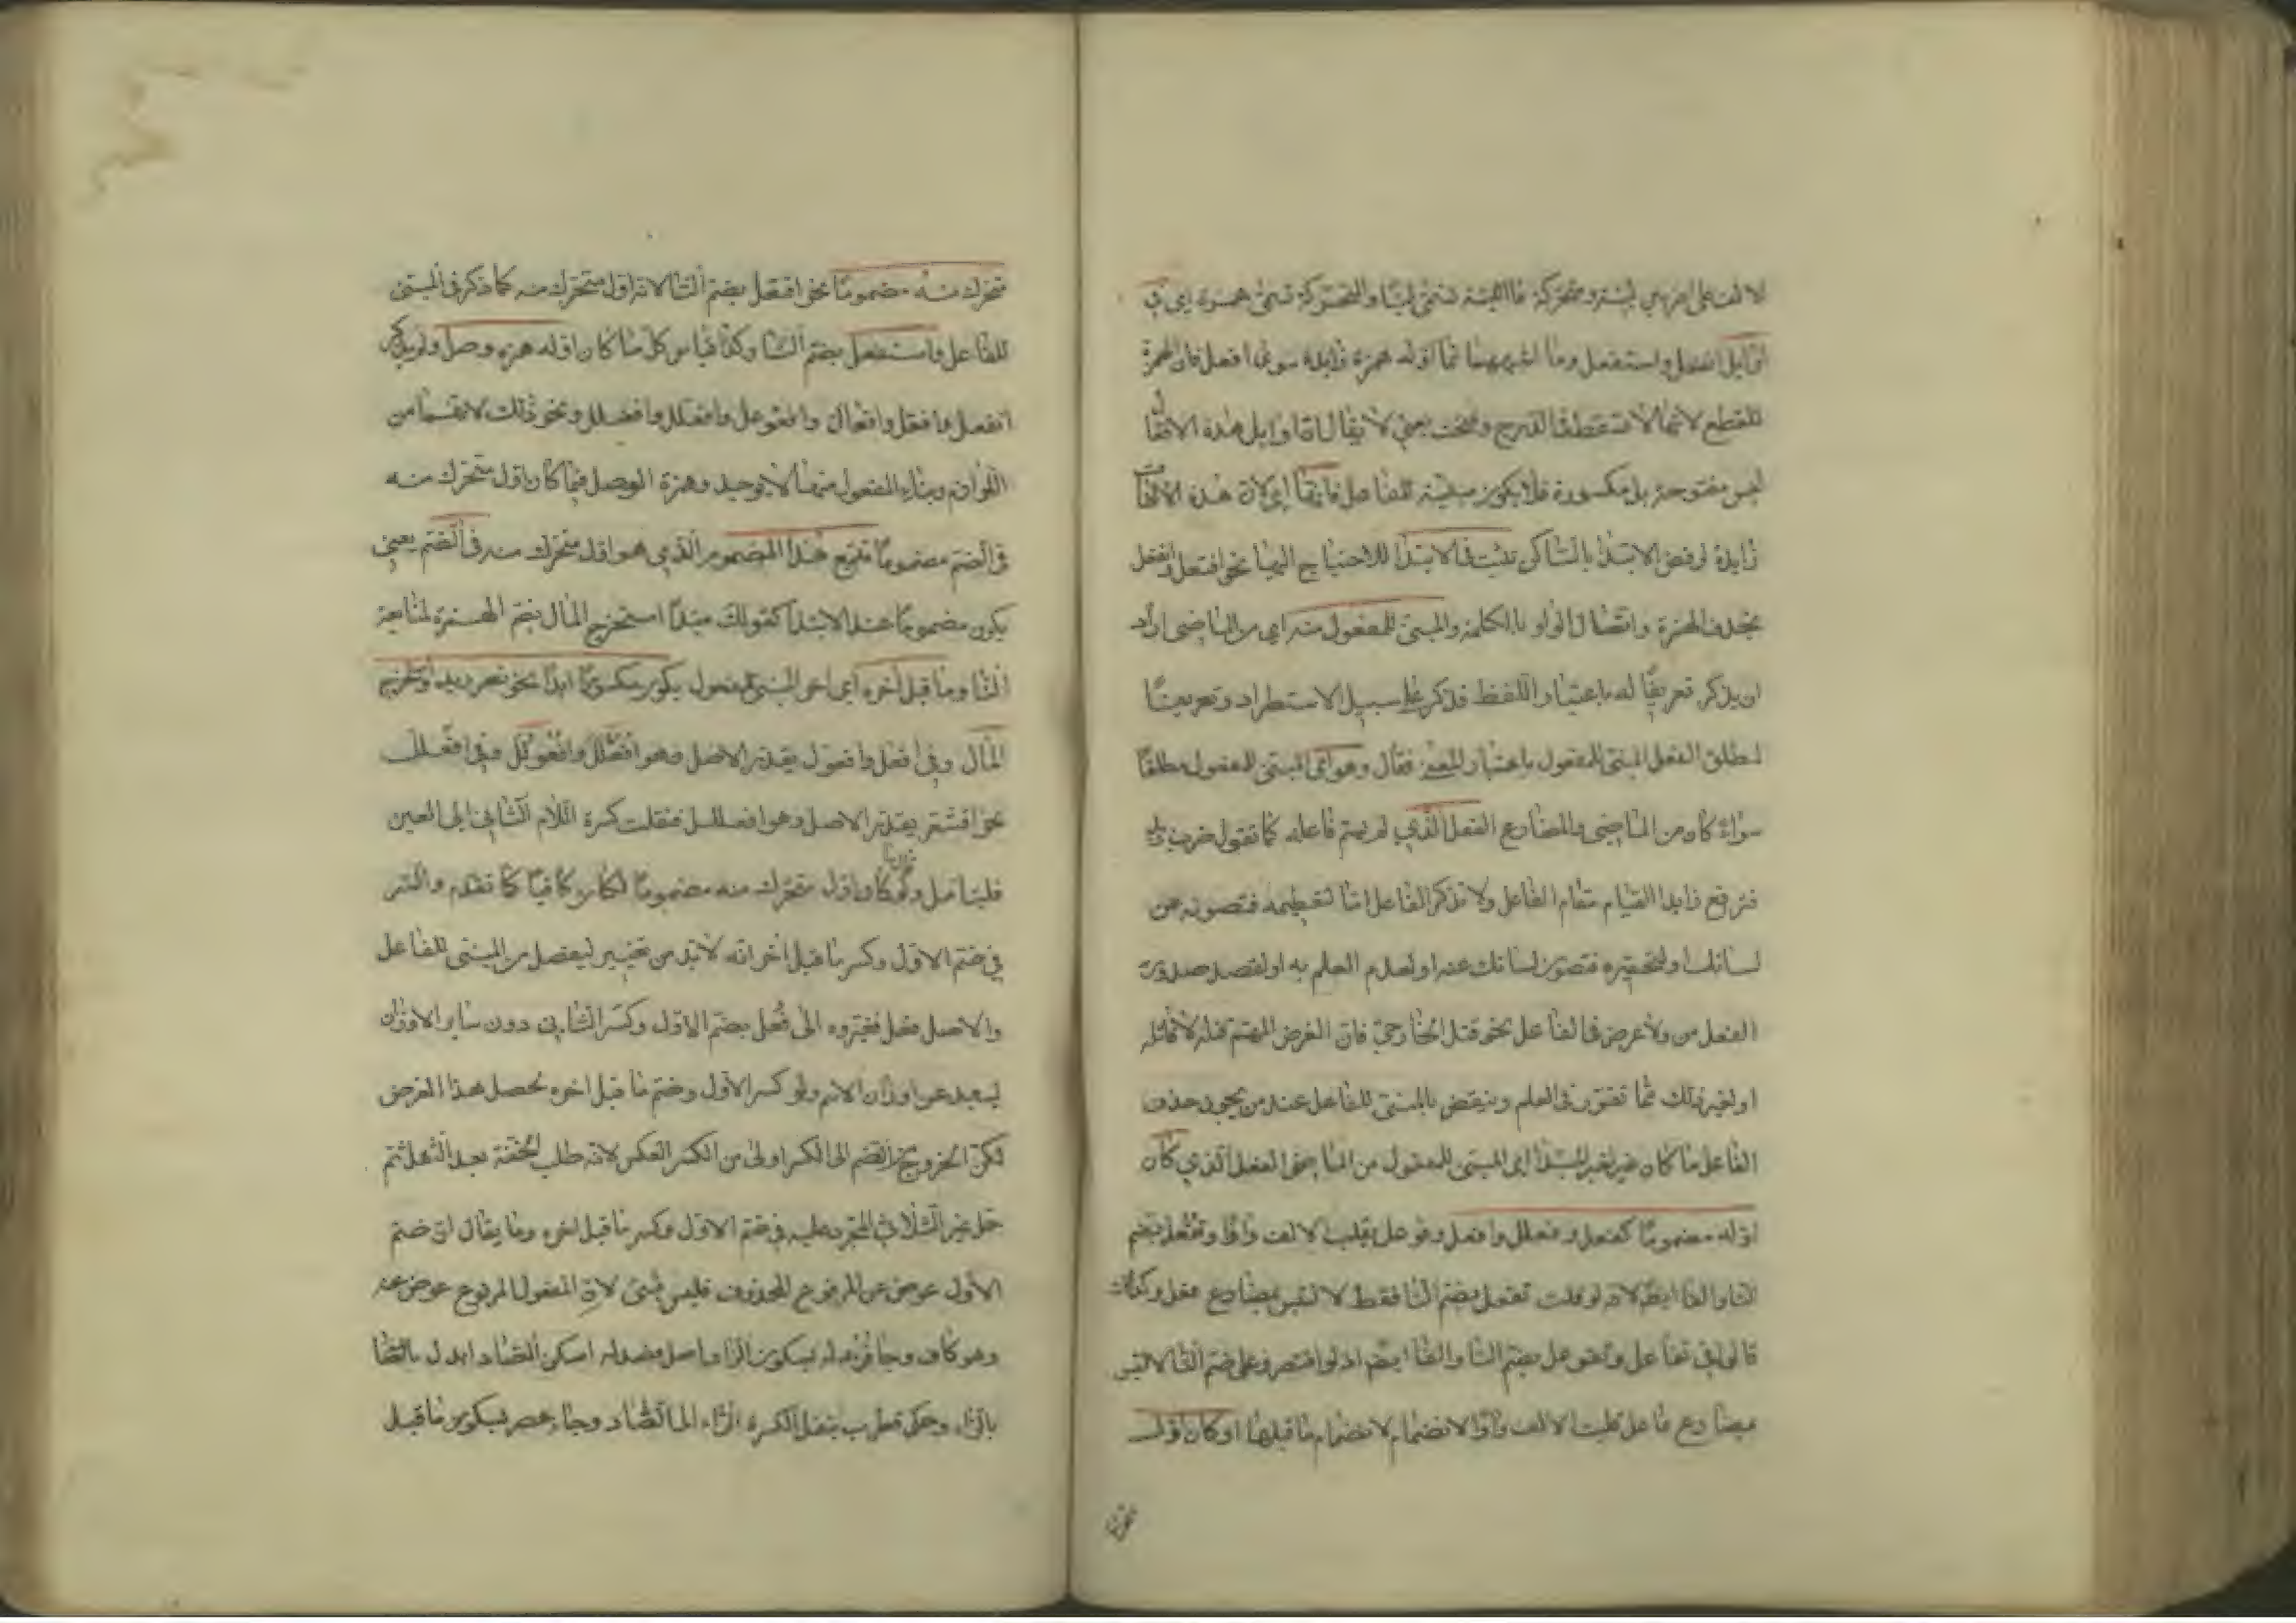 الالف على ضربين لينة ومتحركة فاللينة تسمى لينا والمتحركة تسمى همزة اى فى
اوايل انفعل واستفعل وما اشبههما مما اوله همزة زايدة سوى افعل فان همزة
للقطع لانها لا تسقط فى الدرج وفتحت يعنى لا يقال ان اوايل هذه الالفات
ليس مفتوحة بل مكسورة فلا يكون مبنية للفاعل فانها اى لان هذه الالفات
زايدة لرفض الابتدا بالساكن تثبت فى الابتدا للاحتياج اليها نحو افتعل وانفعل
بحذف الهمزة واتصال الواو بالكلمة والمبنى للمفعول منه اى من الماضى اراد
ان يذكر تعريفا له باعتبار اللفظ فذكر على سبيل الاستطراد تعريفا
لمطلق الفعل المبنى للمفعول باعتبار المعنى فقال وهو اى المبنى للمفعول مطلقا
سواء كان من الماضى والمضارع الفعل الذى لم يسم فاعله كما تقول ضرب زيد
فترفع زايدا لقيام مقام الفاعل ولا تذكر الفاعل اما لتعظيمه فتصونه عن
لسانك او لتحقيره فتصون لسانك عنه او لعدم العلم به او لقصد صدور
الفعل من ولا غرض فى الفاعل نحو قتل الخارجى فان الغرض المهتم قتله لا قاتله
او لغير ذلك مما تقرر فى العلم وينقض بالمبنى للفاعل عند من يجوز حذف
الفاعل ما كان خبر لخبر المبتدا اى المبنى للمفعول من الماضى الفعل الذى كان
اوله مضموما كفعل وفعلل وافعل وفوعل بقلب الالف واوا وتفعل بضم
التا والفا ايضا لانه لو قلت تفعل بضم التا فقط لالتبس بمضارع فعل وكذلك
قالوا فى تفاعل وتفوعل بضم التا والفا ايضا اذ لو اقتصر على ضم التا لالتبس
بمضارع فاعل قلبت الالف واوا لانضمام ما قبلها او كان اول
متحرك
متحرك منه مضموما نحو افتعل بضم التا لانه اول متحرك منه كما ذكر فى المبنى
للفاعل واستفعل بضم التا وكذا قياس كل ما كان اوله همزه وصل ولم يذكر
انفعل وافعل وافعال وافعوعل وافعنلل وافعلل ونحو ذلك لانها من
اللوازم وبناء المفعول منها لا يوجد وهمزة الوصل فيما كان اول متحرك منه
فى الضم مضموما تتبع هذا المضموم الذى هو اول متحرك منه فى الضم يعنى
يكون مضموما عند الابتدا كقولك مبتدا استخرج المال بضم الهمزة لمتابعة
التا وما قبل اخره اى اخر المبنى للمفعول يكون مكسورا ابدا نحو نصر زيد واستخرج
المال وفى افعل وافعول بتقدير الاصل وهو افعلل وافعولل وفى افعلل
نحو اقشعر بتقدير الاصل وهو افعللل فنقلت كسرة اللام الثانى الى العين
فليتامل ولو كان اول متحرك منه مضموما لكان كافيا كما تقدم والسر
فى ضم الاول وكسر ما قبل اخر انه لا بد من تغيير ليفصل من المبنى للفاعل
والاصل فعل فغيروه الى فعل بضم الاول وكسر الثانى دون ساير الاوزان
ليبعد عن اوزان الاسم ولو كسر الاول وضم ما قبل اخره لحصل هذا الغرض
لكن الخروج من الضم الى الكسر اولى من العكس لانه طلب للخفة بعد الثقل ثم
حمل غير الثلاثى المجرد عليه فى ضم الاول وكسر ما قبل اخره وما يقال ان ضم
الاول عوض عن المرفوع المحذوف فليس بشى لان المفعول المرفوع عوض عنه
وهو كاف وجا فزد له بسكون الزا واصل فصد له اسكن الصاد ابدل بالصا
بالزاء وحكى قطرب بنقل الكسرة الراء الى الضاد وجاء عصر بسكون ما قبل